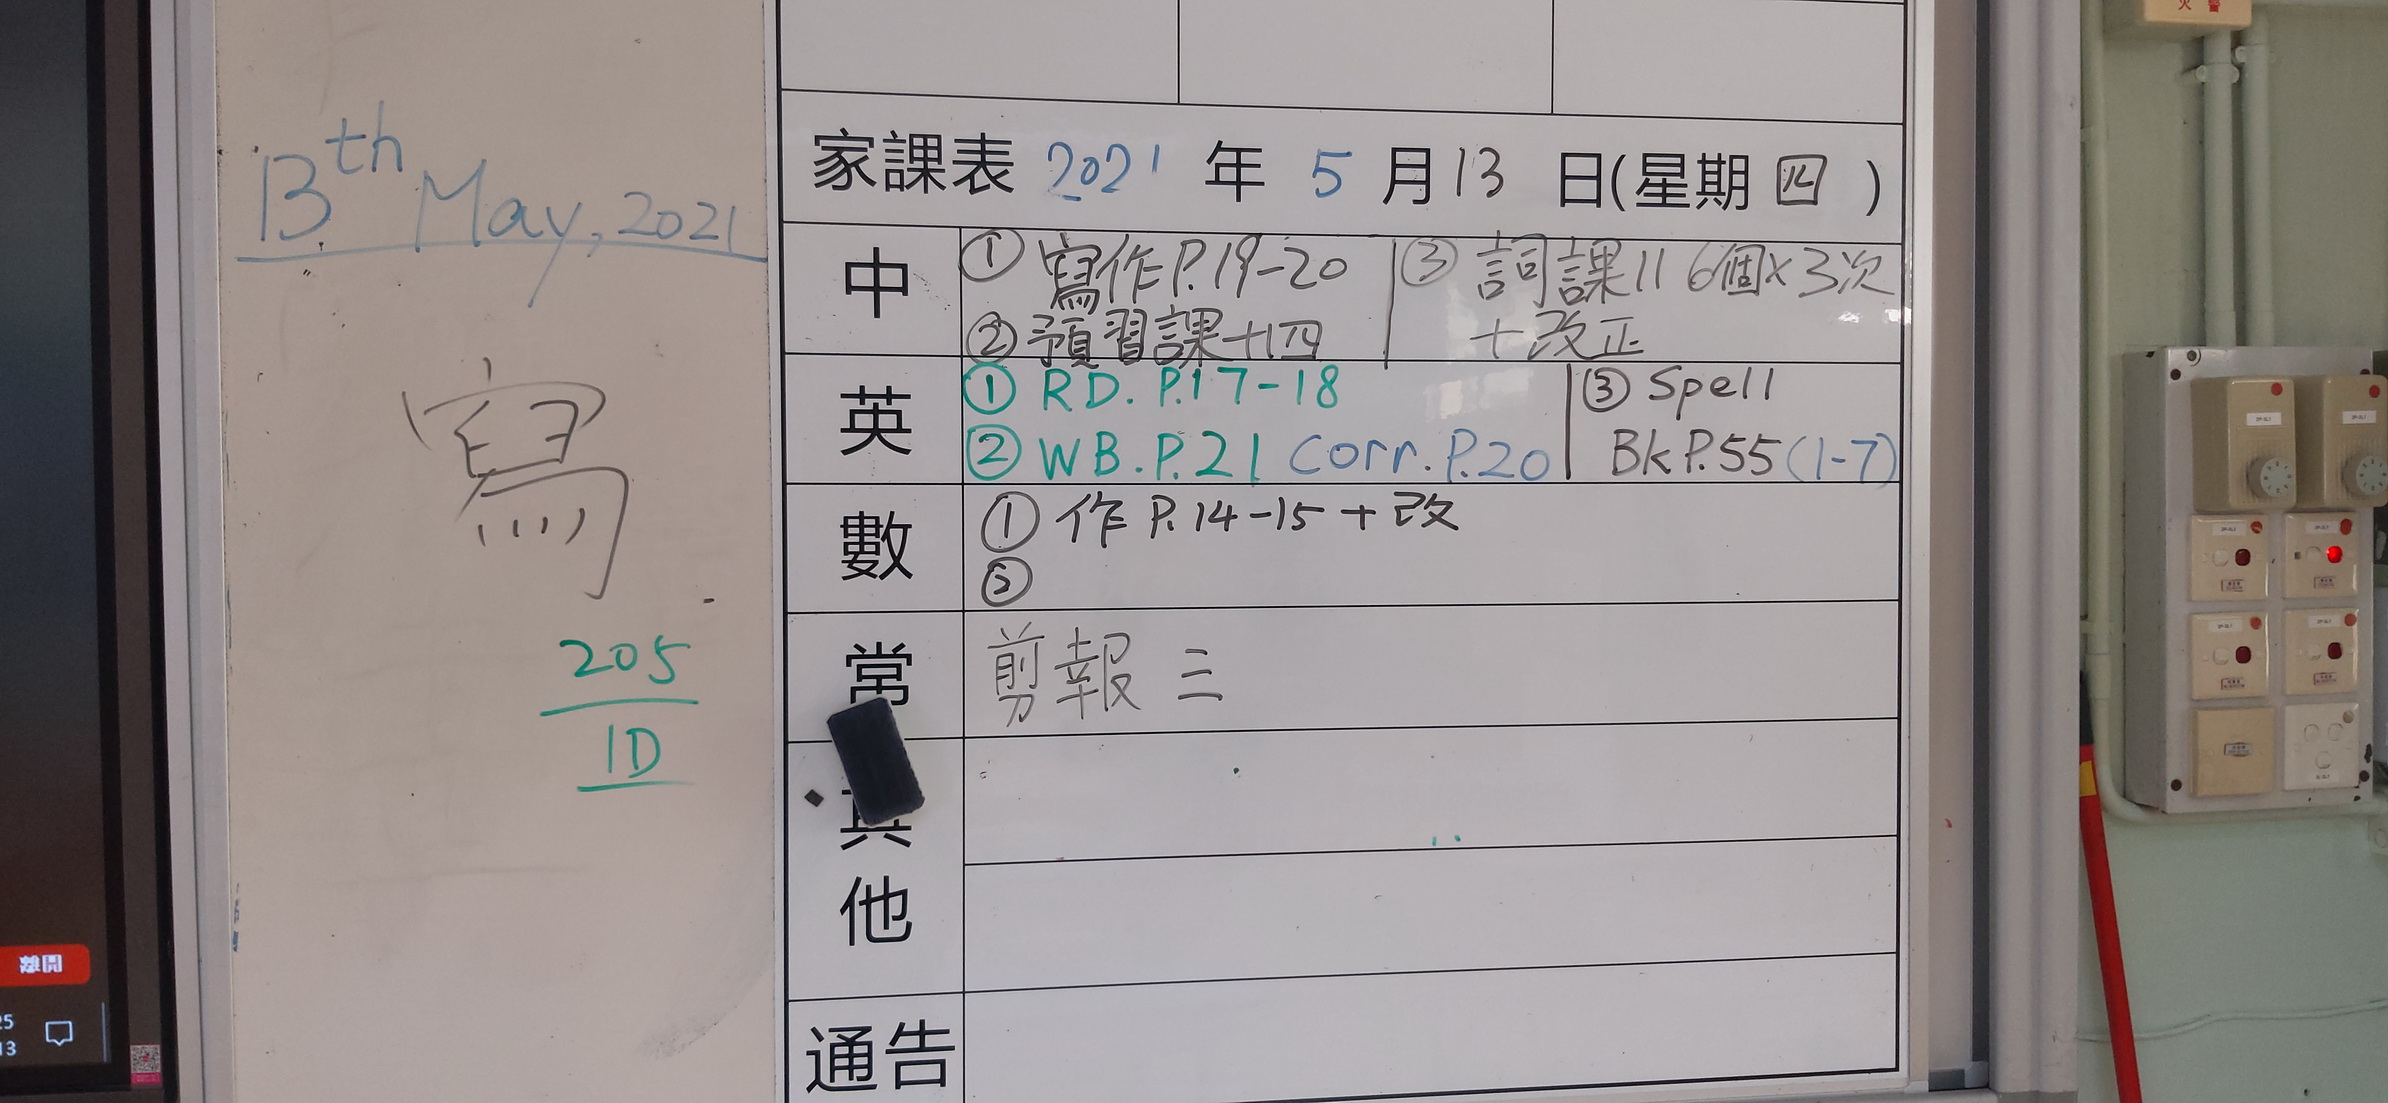 13th May, 2021
寫
205
1D
家課表 2021 年 5 月 13 日(星期 四 )
中
① 寫作P.19-20
② 預習課十四
③ 詞課11 6個×3次
+改正
英
① RD. P.17-18
② WB. P.21 Corr. P.20
③ Spell
Bk P.55 (1-7)
數
① 作 P.14-15 + 改
②
常
剪報 三
其他
通告
離開
25
13
火警